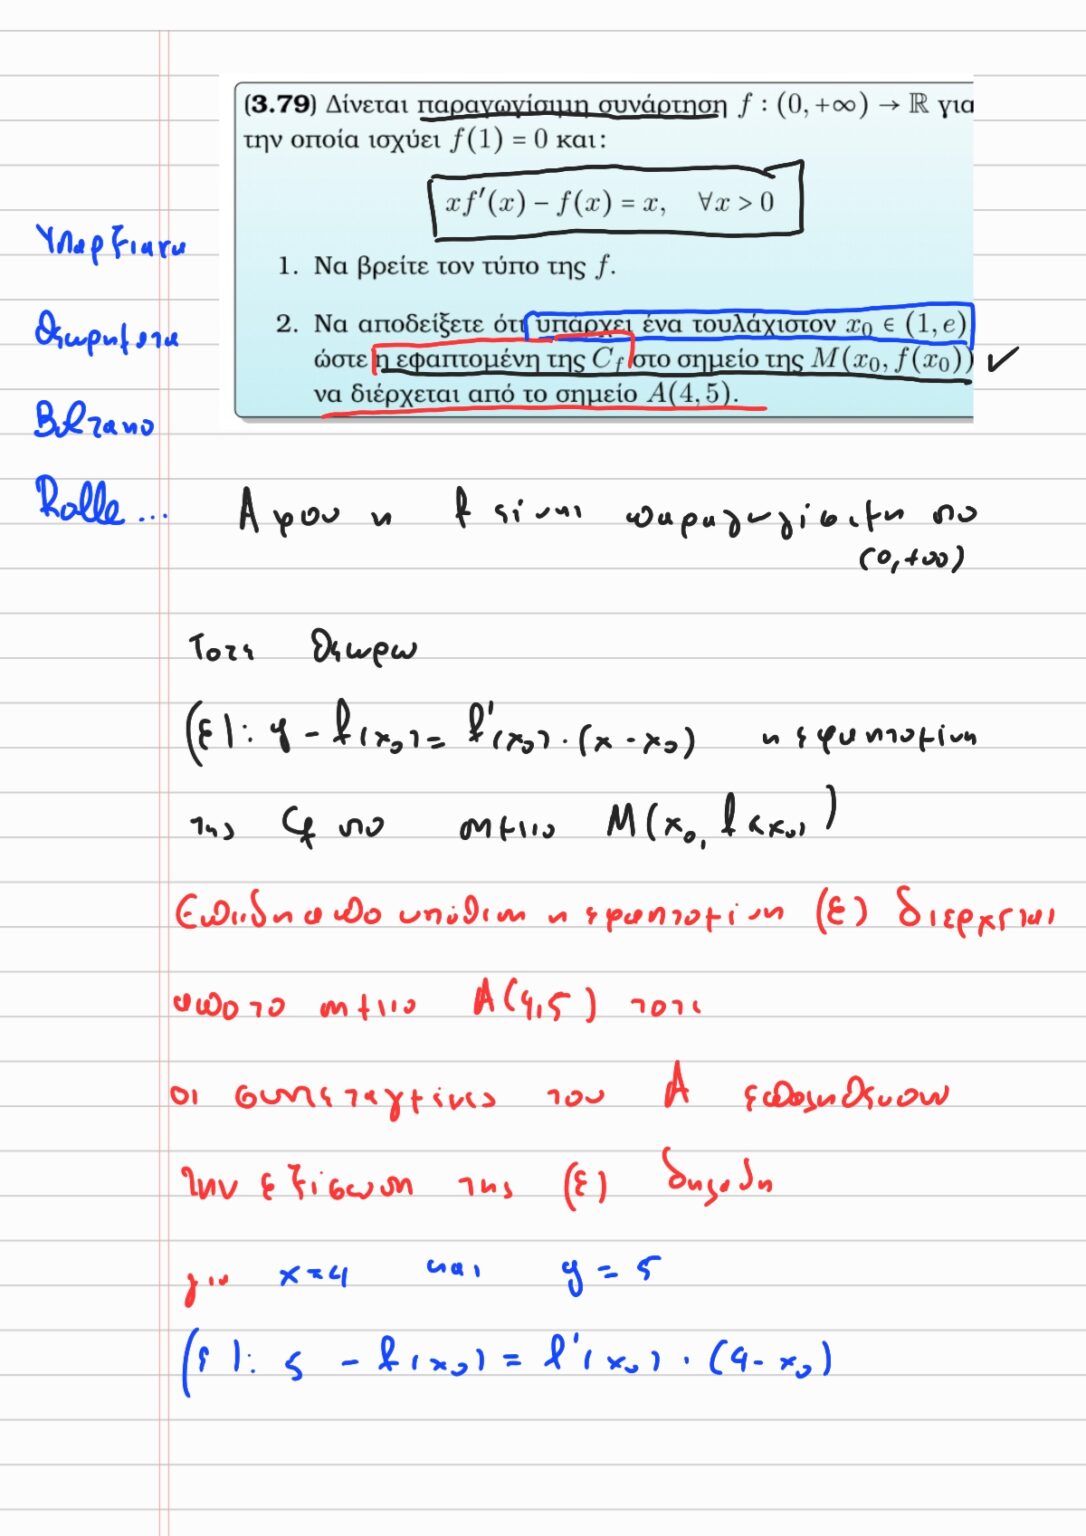 (3.79) Δίνεται παραγωγίσιμη συνάρτηση f : (0, +∞) → ℝ για
την οποία ισχύει f(1) = 0 και:
xf′(x) − f(x) = x, ∀x > 0
1. Να βρείτε τον τύπο της f.
2. Να αποδείξετε ότι υπάρχει ένα τουλάχιστον x₀ ∈ (1, e)
ώστε η εφαπτομένη της C_f στο σημείο της M(x₀, f(x₀)) ✓
να διέρχεται από το σημείο A(4, 5).
Υπαρξιακα
Θεωρηματα
Bolzano
Rolle...
Αφου η f είναι παραγωγίσιμη στο
(0,+∞)
Τοτε Θεωρω
(ε): y - f(x₀) = f'(x₀) · (x - x₀) η εφαπτομένη
της Cf στο σημειο M(x₀, f(x₀))
Επειδη απο υπόθεση η εφαπτομένη (ε) διερχεται
απο το σημειο A(4,5) τοτε
οι συντεταγμένες του A επαληθευουν
την εξίσωση της (ε) δηλαδη
για x=4 και y = 5
(ε): 5 - f(x₀) = f'(x₀) · (4 - x₀)